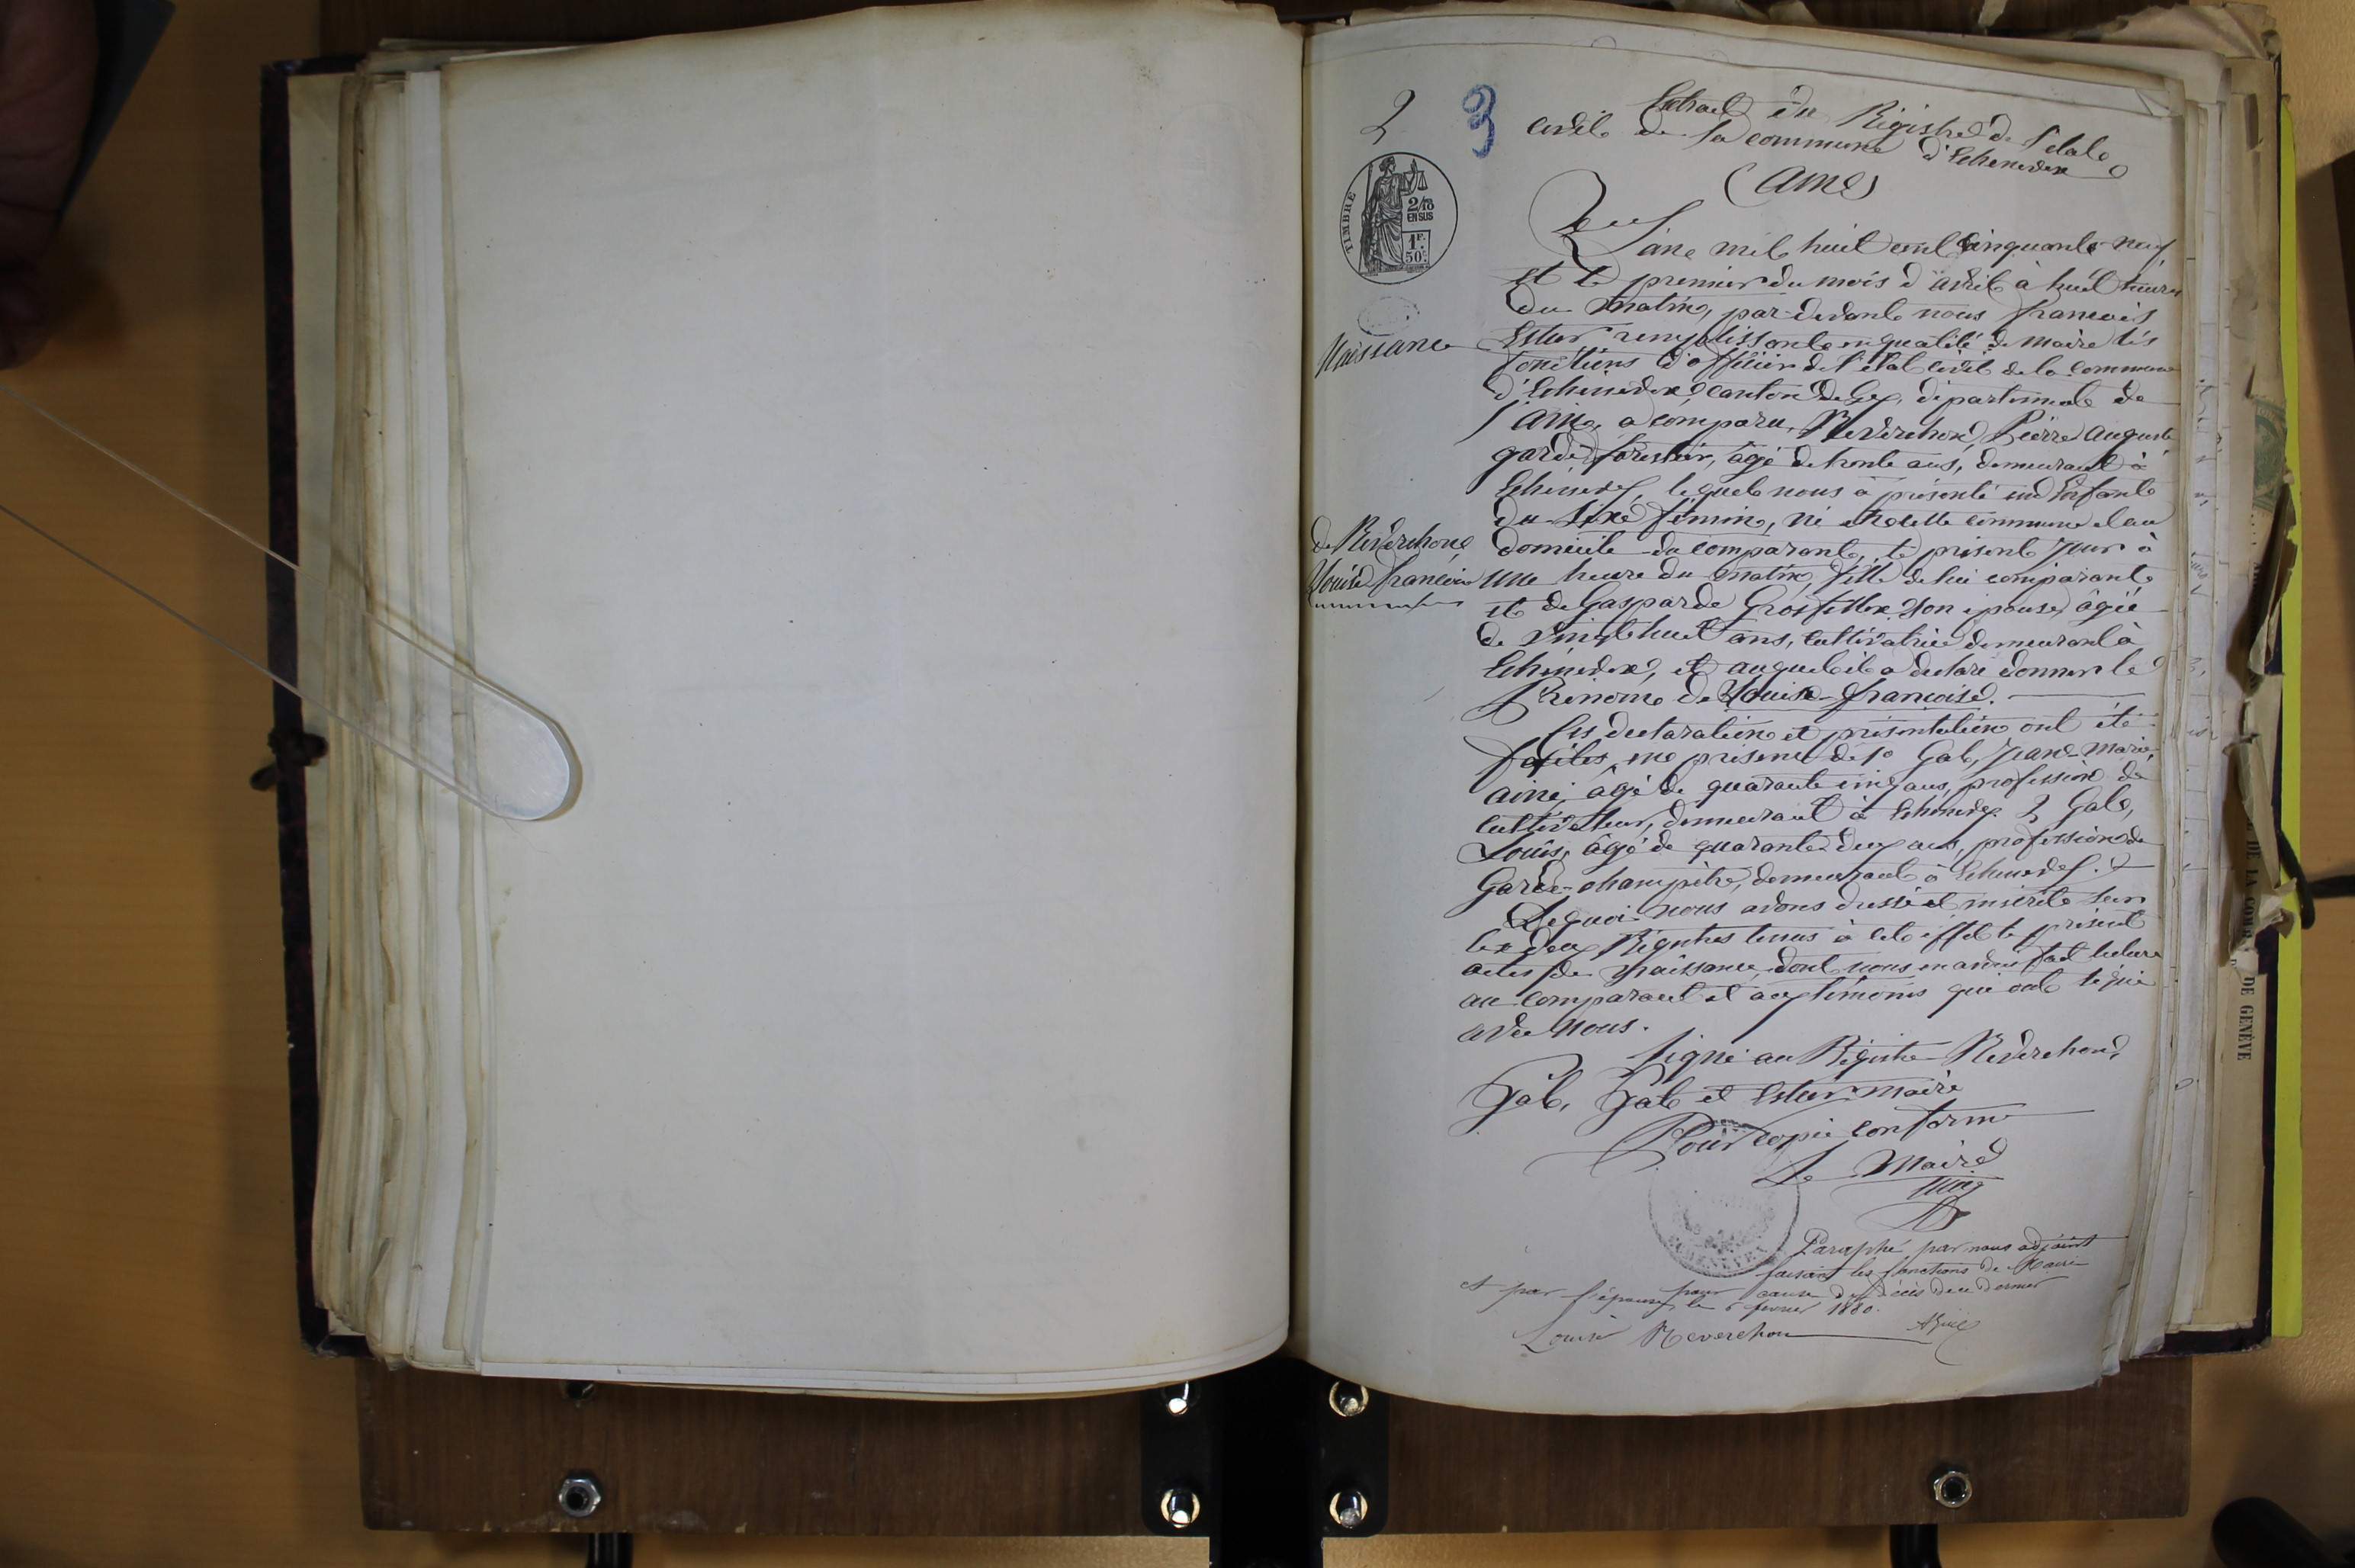 2
3
Extrait du Régistre de l'état
civil de la commune d'Echenevex
(Ain)
TIMBRE
2/10
EN SUS
1F.
50c.
L'an mil huit cent cinquante-neuf
et le premier du mois d'avril à huit heures
du matin, par-devant nous francois
Estier remplissant en qualité de maire les
fonctions d'officier de l'état civil de la commune
d'Echenevex, canton de Gex, département de
l'Ain, a comparu, Reverchon, Pierre Auguste
garde forestier, âgé de trente ans, demeurant à
Echenevex, lequel nous à présenté un Enfant
du sexe féminin, né en cette commune et au
domicile du comparant, le présent jour à
une heure du matin, fille de lui comparant
et de Gasparde Grosfillex son épouse, âgée
de vingt huit ans, cultivatrice demeurant à
Echenevex, et auquel il a déclaré donner le
Prénom de Louise-françoise.
Naissance
de Reverchon
Louise francoise
Ces déclaration et présentation ont été
faites en présence de 1o Gab, Jean-Marie
ainé, âgé de quarante cinq ans, profession de
cultivateur, demeurant à Echenevex 2 Gab,
Louis, âgé de quarante deux ans, profession de
Garde-champêtre, demeurant à Echenevex.
De quoi nous avons dressé et inscrit sur
les deux Régistres tenus à cet effet le présent
acte de Naissance, dont nous avons fait lecture
au comparant et aux témoins qui ont signé
avec nous.
Signé au Régistre Reverchon,
Gab, Gab et Estier maire
Pour copie conforme
Le Maire
Paraphé par nous adjoint
faisant les fonctions de Maire
pour cause de décès de ce dernier
et par l'épouse, le 6 fevrier 1880.
Louise Reverchon
ECHENEVEX
DE GENÈVE